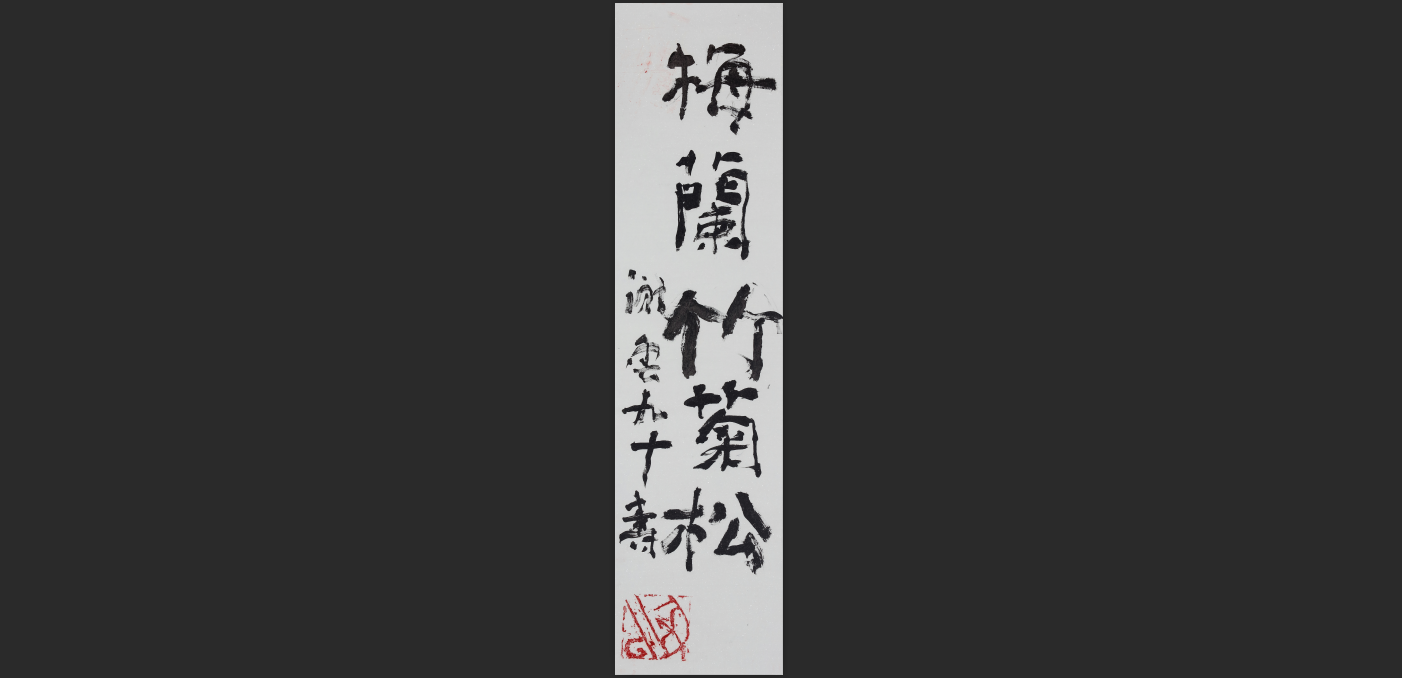 梅蘭竹菊松
謝雲九十壽